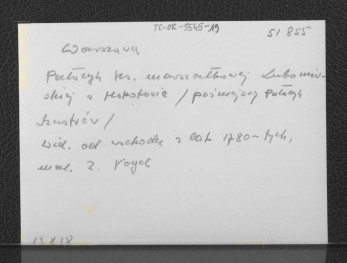 TC-OR-5545-19
51 855
Warszawa
Pałacyk ks. marszałkowej Lubomir-
skiej w Mokotowie / późniejszy Pałacyk
Szustrów /
wid. od wschodu z lat 1780-tych,
mal. Z. Vogel
13 X 18